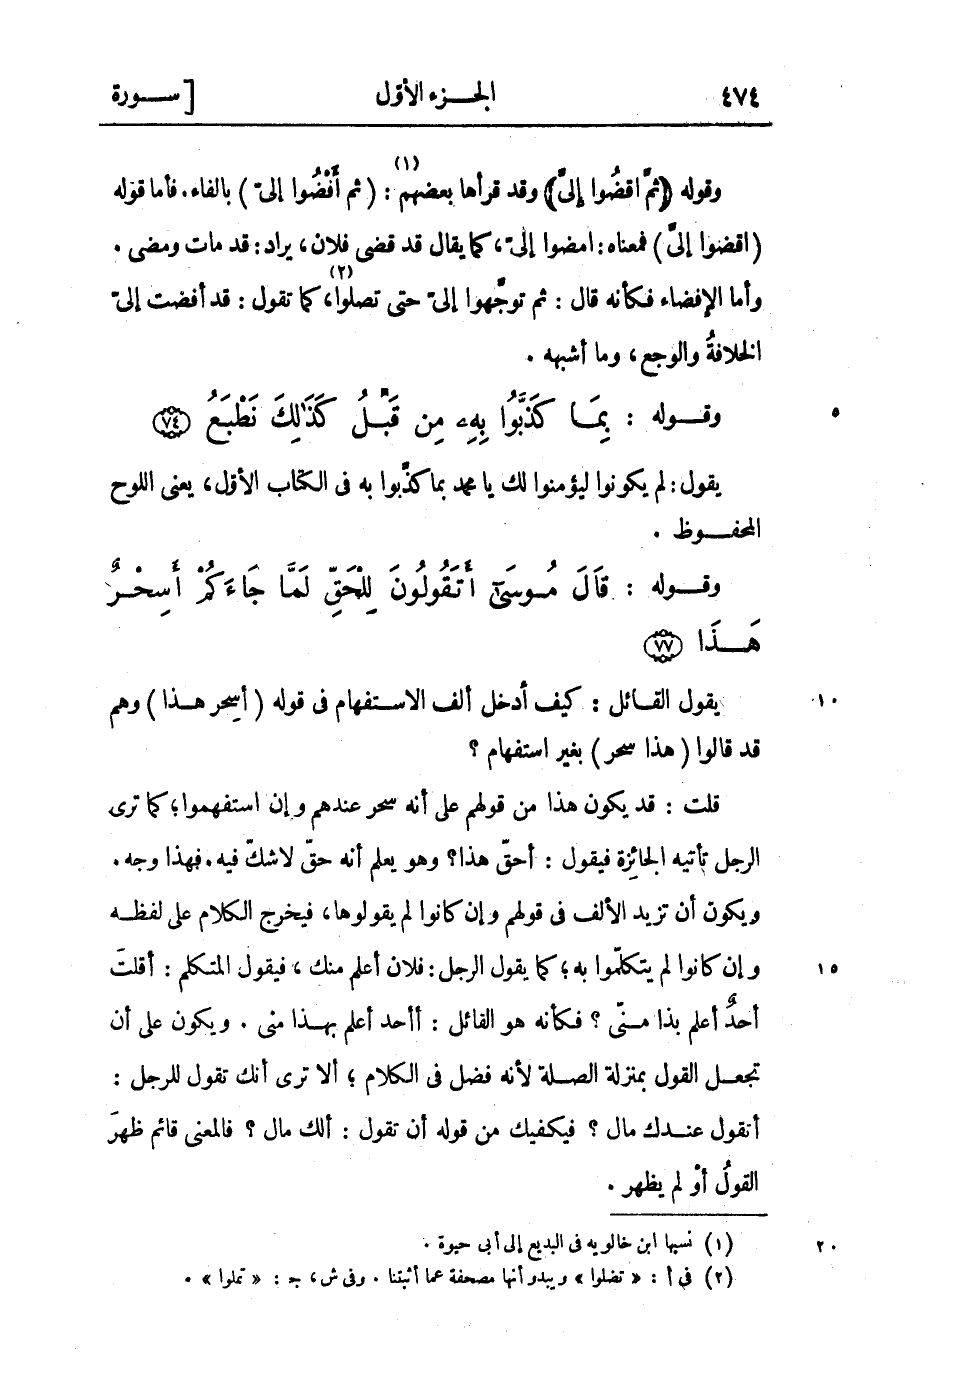 ٤٧٤ الجـزء الأول [ سـورة
وقوله ﴿ ثُمَّ اقضُوا إلىَّ ﴾ وقد قرأها بعضهم (١) : ( ثم أَفْضُوا إلىّ ) بالفاء. فأما قوله
( اقضوا إلىَّ ) فمعناه : امضوا إلىّ ، كما يقال قد قضى فلان ، يراد : قد مات ومضى .
وأما الإفضاء فكأنه قال : ثم توجَّهوا إلىّ حتى تصلوا (٢) ، كما تقول : قد أفضت إلىّ
الخلافةُ والوجع ، وما أشبهه .
وقـوله : بِمَا كَذَّبُوا بِهِۦ مِن قَبْلُ كَذَٰلِكَ نَطْبَعُ ٧٤ ٥
يقول : لم يكونوا ليؤمنوا لك يا محمد بما كذَّبوا به فى الكتاب الأوّل ، يعنى اللوح
المحفـوظ .
وقـوله : قَالَ مُوسَىٰٓ أَتَقُولُونَ لِلْحَقِّ لَمَّا جَآءَكُمْ أَسِحْرٌ
هَـٰذَا ٧٧
يقول القـائل : كيف أدخل ألف الاستفهام فى قوله ( أسِحر هـذا ) وهم ١٠
قد قالوا ( هذا سحر ) بغير استفهام ؟
قلت : قد يكون هذا من قولهم على أنه سحر عندهم وإن استفهموا ؛ كما ترى
الرجل تأتيه الجائزة فيقول : أحقّ هذا ؟ وهو يعلم أنه حقّ لاشكّ فيه . فهذا وجه .
ويكون أن تزيد الألف فى قولهم وإن كانوا لم يقولوها ، فيخرج الكلام على لفظـه
وإن كانوا لم يتكلّموا به ؛ كما يقول الرجل : فلان أعلم منك ، فيقول المتكلم : أقلتَ ١٥
أحدٌ أعلم بذا مـنّى ؟ فكأنه هو القائل : أأحد أعلم بهـذا منى . ويكون على أن
تجعـل القول بمنزلة الصـلة لأنه فضل فى الكلام ؛ ألا ترى أنك تقول للرجل :
أتقول عنـدك مال ؟ فيكفيك من قوله أن تقول : ألك مال ؟ فالمعنى قائم ظهرَ
القولُ أوْ لم يظهر .
(١) نسبها ابن خالويه فى البديع إلى أبى حيوة . ٢٠
(٢) فى أ : « تضلوا » ويبدو أنها مصحفة عما أثبتنا . وفى ش ، جـ : « تملوا » .